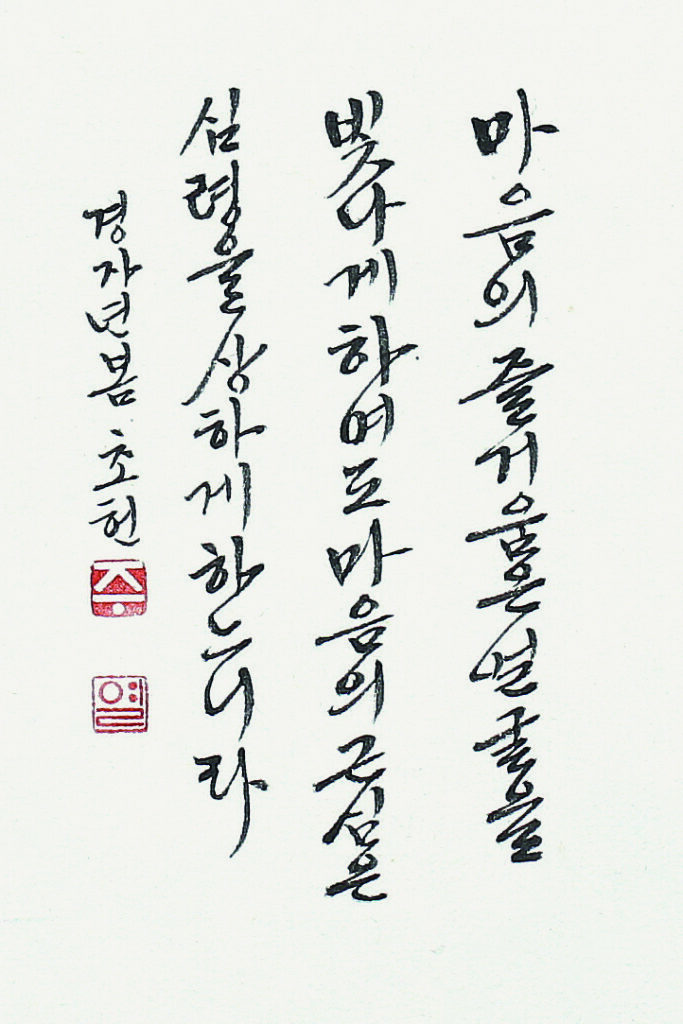 마음의 즐거움은 얼굴을
빛나게 하여도 마음의 근심은
심령을 상하게 하느니라
경자년 봄 초헌